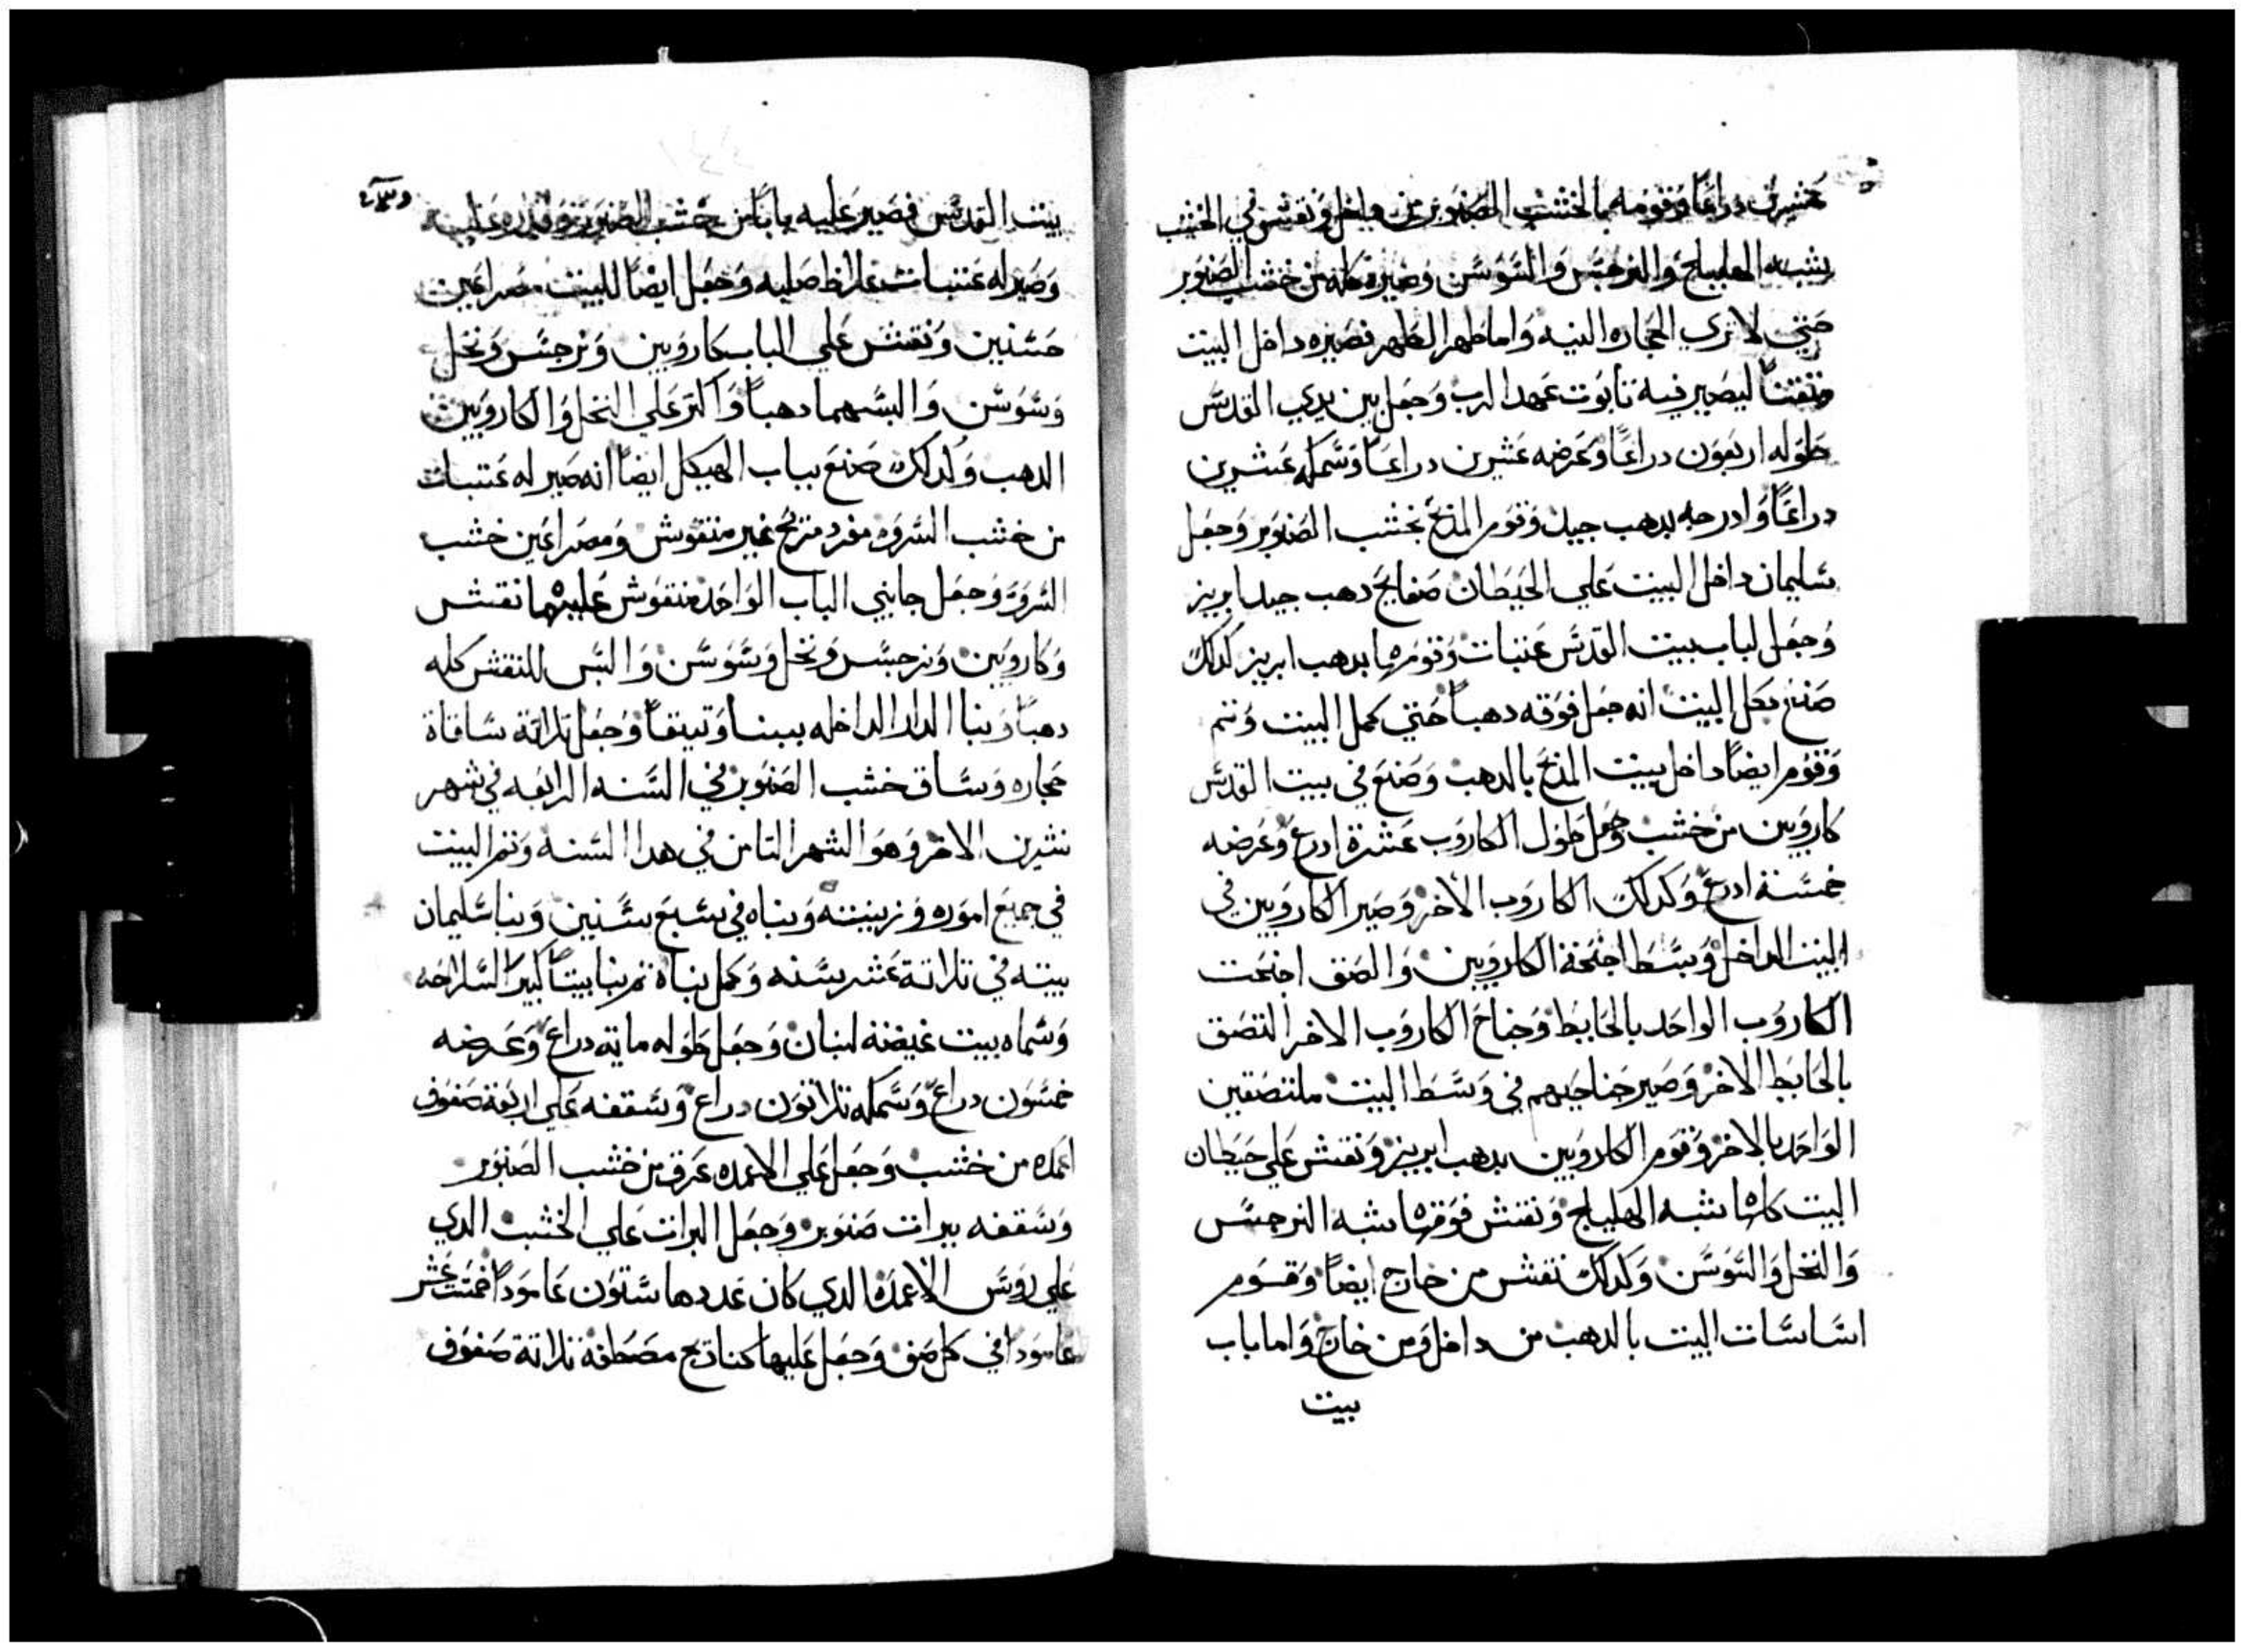 عشرين دراعًا وقومه بالخشب الصنوبر من داخل ونقش في الخشب
بشبه الهليلج والنرجس والسوسن وصيره كله من خشب الصنوبر
حتي لا تري الحجاره البتيه واما طهر الطهر فصيره داخل البيت
متقنًا ليصير فيه تابوت عهد الرب وجعل بين يدي القدس
طوله اربعون دراعًا وعرضه عشرين دراعًا وسمكه عشرين
دراعًا وادرجه بدهب جيد وقوم المدبح بخشب الصنوبر وجعل
سليمان داخل البيت علي الحيطان صفايح دهب جيد ابريز
وجعل لباب بيت القدس عتبات وقومها بدهب ابريز كدلك
صنع بكل البيت انه جعل فوقه دهبًا حتي كمل البيت وتم
وقوم ايضًا داخل بيت المدبح بالدهب وصنع في بيت القدس
كاروبين من خشب وجعل طول الكاروب عشرة ادرع وعرضه
خمسة ادرع وكدلك الكاروب الاخر وصير الكاروبين في
البيت الداخل وبسط اجنحة الكاروبين والصق اجنحت
الكاروب الواحد بالحايط وجناح الكاروب الاخر التصق
بالحايط الاخر وصير جناحيهم في وسط البيت ملتصقين
الواحد بالاخر وقوم الكاروبين بدهب ابريز ونقش علي حيطان
البيت كلها شبه الهليلج ونقش فوقها شبه النرجس
والنخل والسوسن وكدلك نقش من خارج ايضًا وقوم
اساسات البيت بالدهب من داخل ومن خارج واما باب
بيت
بيت القدس فصير عليه بابًا من خشب الصنوبر
وصير له عتبات وجعل ايضًا للبيت مصراعين
حسنين ونقش علي الباب كاروبين ونرجس ونخل
وسوسن والبسهما دهبًا واكتر علي النخل والكاروبين
الدهب وكدلك صنع بباب الهيكل ايضًا انه صير له عتبات
من خشب السروه مفرد مربع غير منقوش ومصراعين خشب
السروة وجعل جانبي الباب الواحد منقوش عليهما نقش
وكاروبين ونرجس ونخل وسوسن والبس للنقش كله
دهبًا وبنا الدار الداخله ببنا وتيقًا وجعل تلاتة سافاة
حجاره وساف خشب الصنوبر في السنه الرابعه في شهر
تشرين الاخر وهو الشهر التامن في هدا السنه وتم البيت
في جميع اموره وزينته وبناه في سبع سنين وبنا سليمان
بيته في تلاتة عشر سنه وكمل بناه تم بنا بيتًا كبيرًا لسلاحه
وسماه بيت غيضة لبنان وجعل طوله مايه دراع وعرضه
خمسون دراع وسمكه تلاتون دراع وسقفه علي اربعة صفوف
اعمده من خشب وجعل علي الاعمده عرق من خشب الصنوبر
وسقفه بيرات صنوبر وجعل البرات علي الخشب الدي
علي روس الاعمده الدي كان عددها ستون عامودًا خمسة عشر
عامودًا في كل صف وجعل عليها كنادج مصطفة تلاتة صفوف